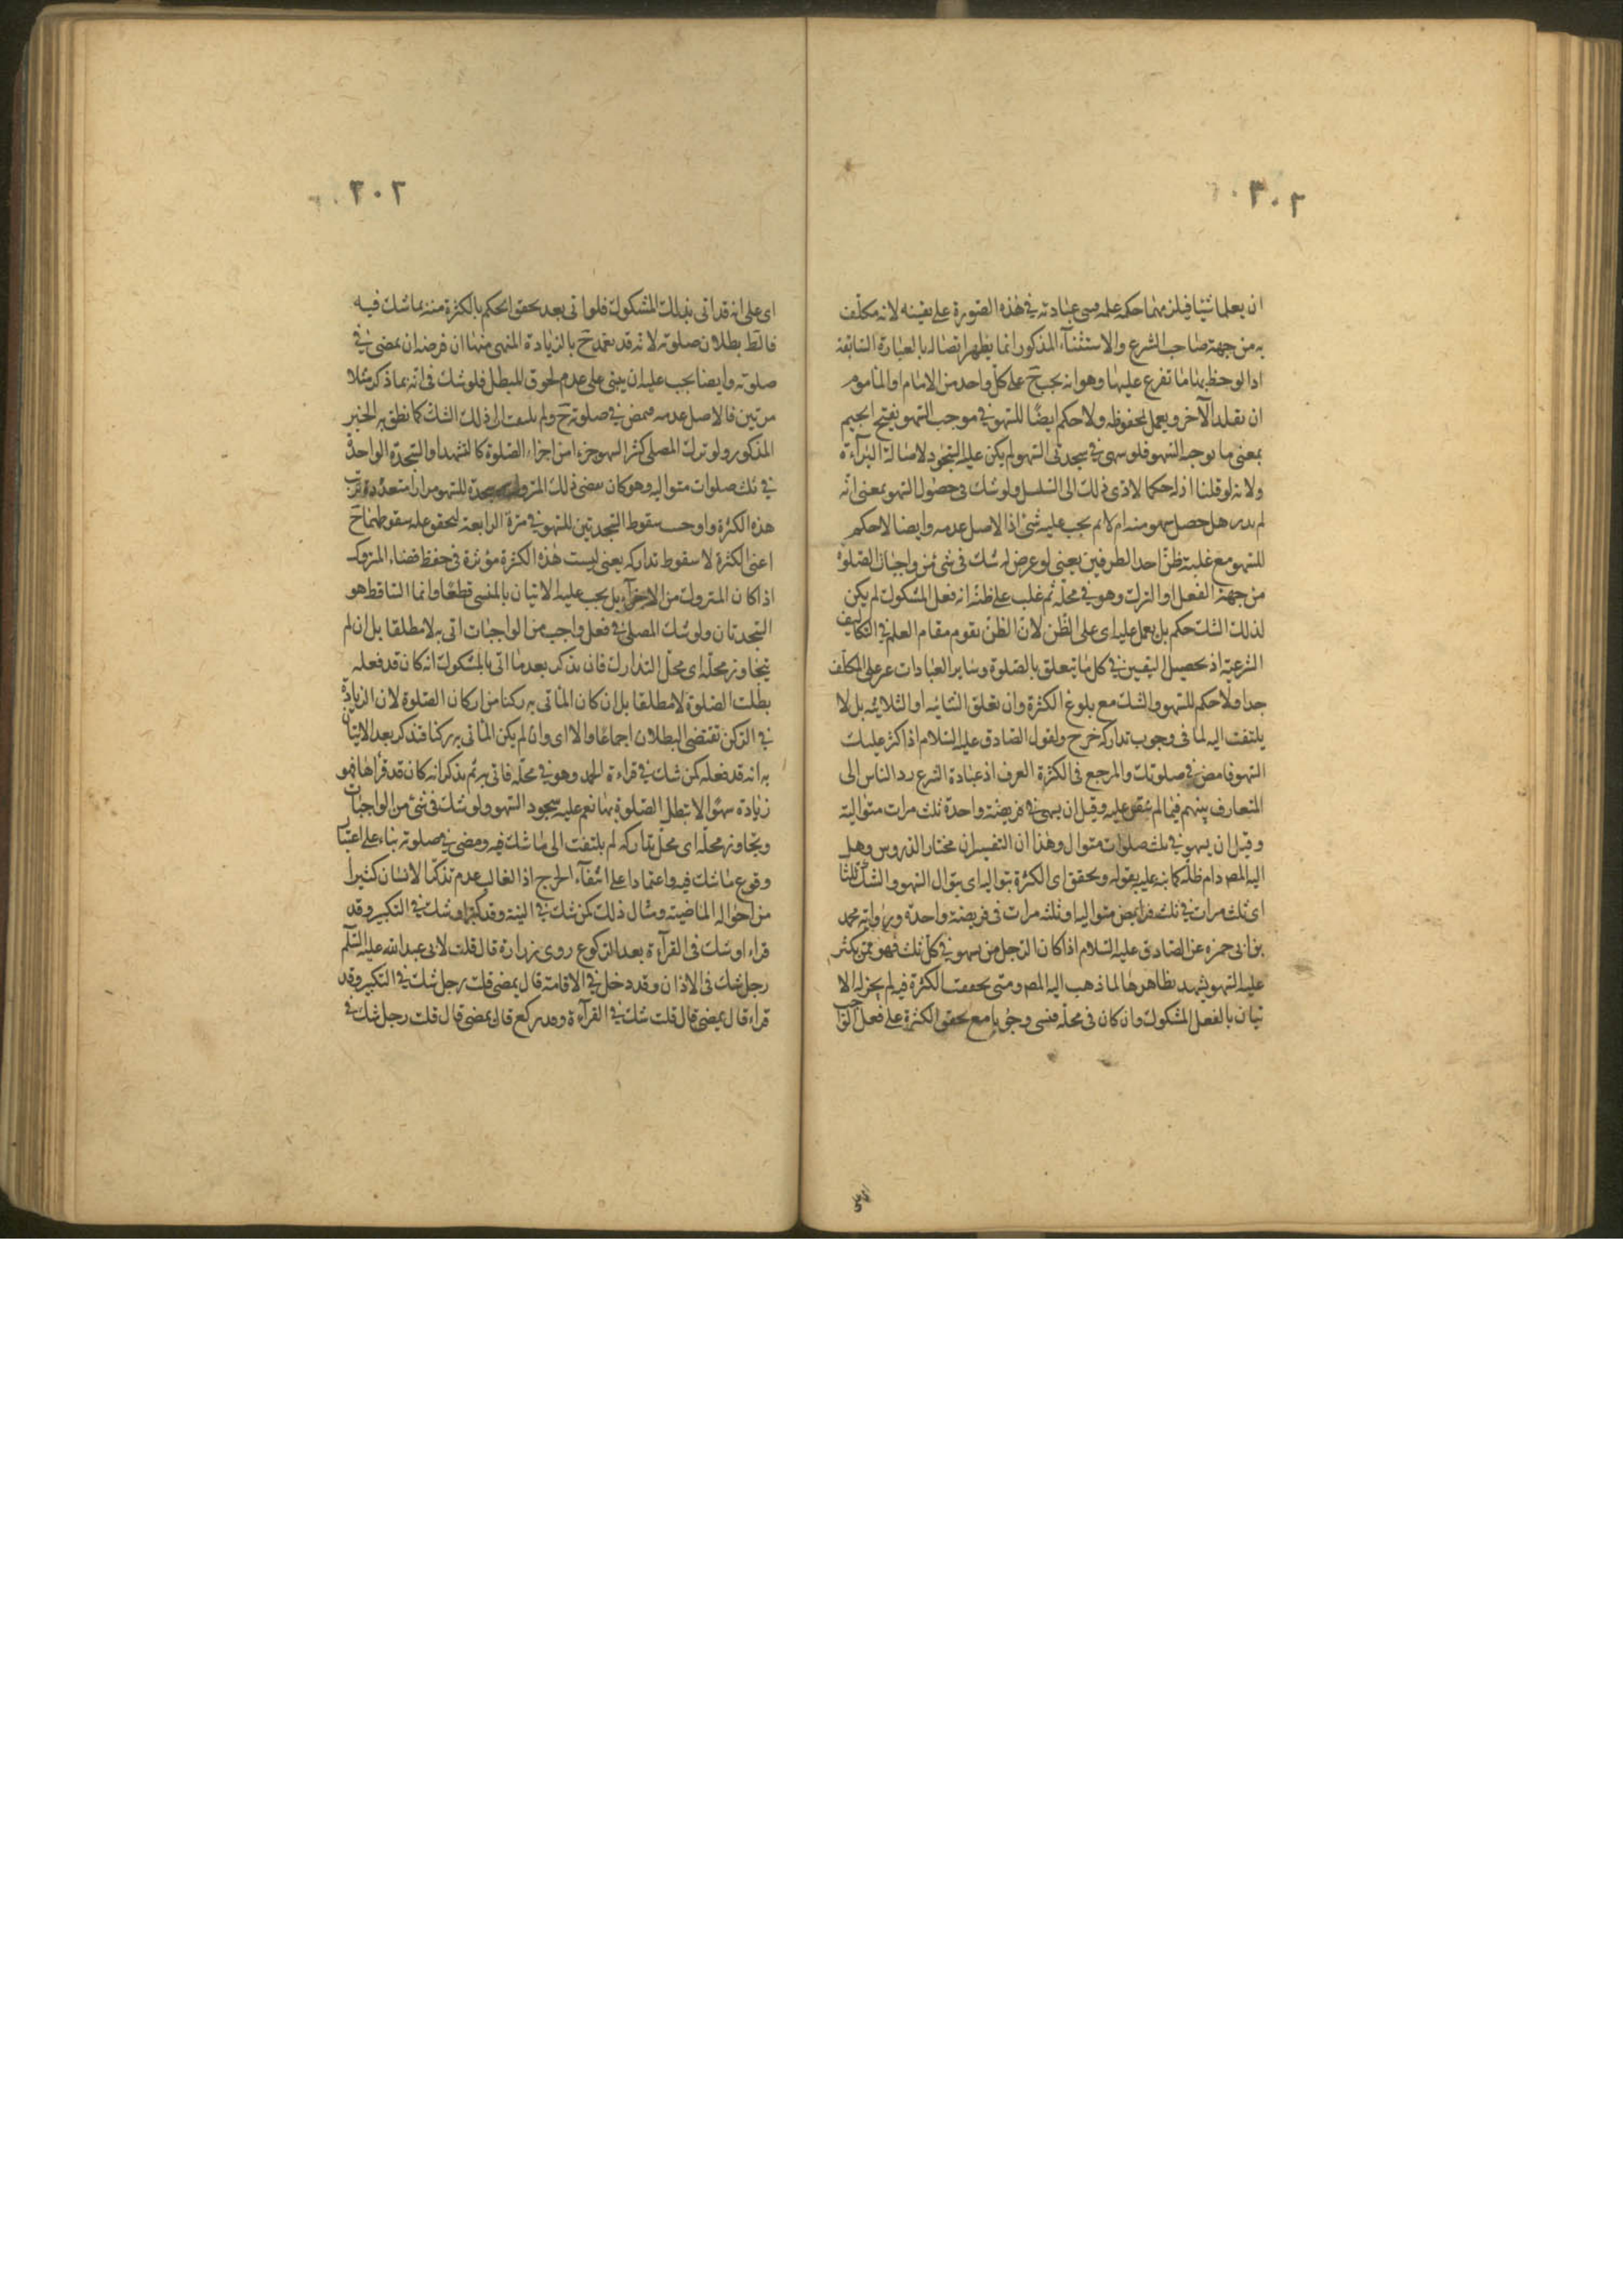 ٢٠٢
ان يعلما شيئا فيلزمهما حكمه علمه ومبنى عبادته في هذه الصورة على يقينه لانه مكلف
به من جهة صاحب الشرع والاستثناء المذكور انما يظهر اتصاله بالعبارة السابقة
اذا لوحظ بهذا ما تفرع عليها وهو انه يجب ح على كل واحد من الامام او الماموم
ان يقلد الآخر ويعمل بمحفوظه ولا حكم ايضا للسهو في موجب السهو بفتح الجيم
بمعنى ما يوجبه السهو فلو سهى في سجدتى السهو لم يكن عليه السجود لاصالة البرآءة
ولانه لو قلنا ان له حكما لادى ذلك الى التسلسل ولو شك في حصول السهو بمعنى انه
لم يدر هل حصل سهو منه ام لا لم يجب عليه شئ اذ الاصل عدمه وايضا لا حكم
للسهو مع غلبة ظن احد الطرفين يعنى لو عرض له شك في شئ من واجبات الصلوة
من جهة الفعل او الترك وهو في محله ثم غلب على ظنه انه فعل المشكوك لم يكن
لذلك الشك حكم بل يعمل عليه اى على الظن لان الظن يقوم مقام العلم في التكاليف
الشرعية اذ تحصيل اليقين في كل ما يتعلق بالصلوة وساير العبادات عسر على المكلف
جدا ولا حكم للسهو والشك مع بلوغ الكثرة وان تعلق الثنائية او الثلاثية بل لا
يلتفت اليه لما في وجوب تداركه حرج ولقول الصادق عليه السلام اذا كثر عليك
السهو فامض في صلوتك والمرجع في الكثرة العرف اذ عبادة الشرع رد الناس الى
المتعارف بينهم فيما لم ينص عليه وقيل ان يسهى في فريضة واحدة ثلث مرات متوالية
وقيل ان يسهو في ثلث صلوات متوال وهذا ان التفسيران مختار الدروس وهل
اليه المص دام ظله كما نبه عليه بقوله ويحقق اى الكثرة بتواليه اى بتوال السهو والشك ثلثا
اى ثلث مرات في ثلث فرايض متواليه او ثلثه مرات في فريضة واحدة ورواية محمد
بن ابى حمزه عن الصادق عليه السلام اذا كان الرجل من يسهو في كل ثلث فهو ممن يكثر
عليه السهو يشهد بظاهرها لما ذهب اليه المص ومتى تحققت الكثرة فيه لم يجز له الا
تيان بالفعل المشكوك وان كان في محله فنبنى وجوبا مع تحقق الكثرة على فعل الواجب
٢٠٣
اى على انه قد اتى بذلك المشكوك فلو اتى بعد تحقق الحكم بالكثرة منه بما شك فيه
فالظ بطلان صلوته لانه قد تعمد ح بالزيادة المنهى منها ان فرضه ان يمضى في
صلوته وايضا يجب عليه ان يبنى على عدم لحوق المبطل فلو شك في انه بما ذكر مثلا
مرتين فالاصل عدمه فيمض في صلوته ح ولم يلتفت الى ذلك الشك كما نطق به الخبر
المذكور ولو ترك المصلى كثير السهو جزء امن اجزاء الصلوة كالتشهد او السجدة الواحدة
في ثلث صلوات متواليه وهو كان يقضى ذلك المتروك ويسجد للسهو مرارا متعددة ترتب
هذه الكثرة واوجب سقوط السجدتين للسهو في مرة الرابعة لتحقق علة سقوطهما ح
اعنى الكثرة لا سقوط تداركه يعنى ليست هذه الكثرة مؤثرة في حفظ قضاء المتروك
اذا كان المتروك من الاجزآء بل يجب عليه الاتيان بالمنسى قطعا وانما الساقط هو
السجدتان ولو شك المصلى في فعل واجب من الواجبات اتى به لا مطلقا بل ان لم
يتجاوز محله اى محل التدارك فان تذكر بعد ما اتى بالمشكوك انه كان قد فعله
بطلت الصلوة لا مطلقا بل ان كان الماتى به ركنا من اركان الصلوة لان الزيادة
في الركن تقتضى البطلان اجماعا والا اى وان لم يكن الماتى به ركنا فتذكر بعد الاتيان
به انه قد فعله كمن شك في قراءة الحمد وهو في محله فاتى به ثم تذكر انه كان قد قرأها فهو
زيادة سهوا لا تبطل الصلوة بها نعم عليه سجود السهو ولو شك في شئ من الواجبات
وتجاوز محله اى محل تداركه لم يلتفت الى ما شك فيه ومضى في صلوته بناء على اعتبار
وقوع ما شك فيه واعتمادا على انتفآء الحرج اذ الغالب عدم تذكر الانسان كثيرا
من احواله الماضية ومثال ذلك كمن شك في النية وقد كبر او شك في التكبير وقد
قراء او شك في القرآءة بعد الركوع روى زرارة قال قلت لابى عبد الله عليه السلم
رجل شك في الاذان وقد دخل في الاقامة قال يمضى قلت رجل شك في التكبير وقد
قراء قال يمضى قال قلت شك في القرآءة وقد ركع قال يمضى قال قلت رجل شك في